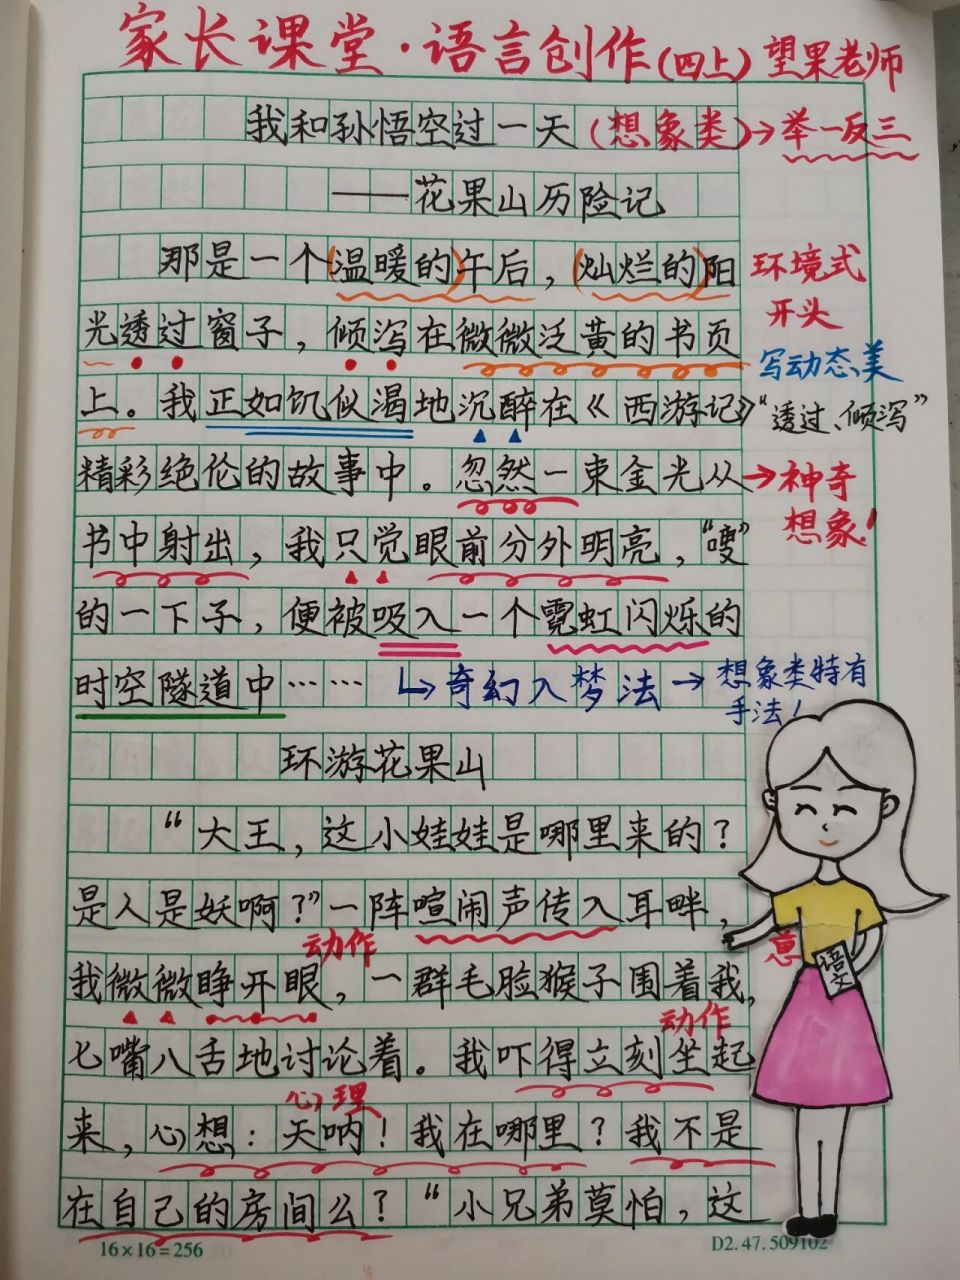 家长课堂·语言创作(四上) 望果老师
我和孙悟空过一天(想象类)→举一反三
——花果山历险记
那是一个(温暖的)午后，(灿烂的)阳 环境式
开头
光透过窗子，倾泻在微微泛黄的书页 写动态美
上。我正如饥似渴地沉醉在《西游记》 “透过、倾泻”
精彩绝伦的故事中。忽然一束金光从→神奇
想象！
书中射出，我只觉眼前分外明亮，“嗖”
的一下子，便被吸入一个霓虹闪烁的
时空隧道中…… ↳奇幻入梦法→想象类特有
手法！
环游花果山
“大王，这小娃娃是哪里来的？
是人是妖啊？”一阵喧闹声传入耳畔，
动作
意
我微微睁开眼，一群毛脸猴子围着我，
语文
动作
七嘴八舌地讨论着。我吓得立刻坐起
心理
来，心想：天呐！我在哪里？我不是
在自己的房间么？“小兄弟莫怕，这
16×16=256 D2.47.509102